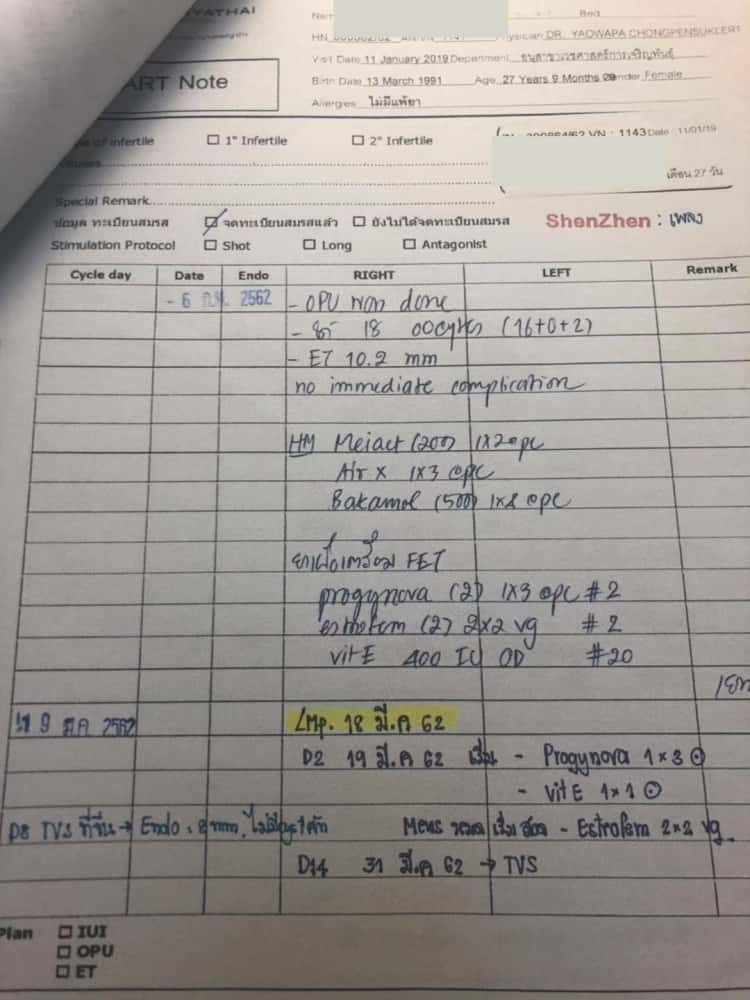 YATHAI
Bed
Physician DR. YAOWAPA CHONGPENSUKLERT
Visit Date 11 January 2019 Department
Birth Date 13 March 1991 Age 27 Years 9 Months Gender Female
ART Note
Allergies ไม่มีแพ้ยา
of infertile ☐ 1° Infertile ☐ 2° Infertile
VN : 1143 Date : 11/01/19
เดือน 27 วัน
Special Remark
ข้อมูล ทะเบียนสมรส ☑ จดทะเบียนสมรสแล้ว ☐ ยังไม่ได้จดทะเบียนสมรส ShenZhen : เพลง
Stimulation Protocol ☐ Shot ☐ Long ☐ Antagonist
Cycle day Date Endo RIGHT LEFT Remark
- 6 ก.พ. 2562 - OPU was done
- ได้ 18 oocytes (16+0+2)
- ET 10.2 mm
no immediate complication
HM Meiact (200) 1x2 opc
Air x 1x3 opc
Bakamol (500) opc
FET
progynova (2) 1x3 opc #2
estrofem (2) 2x2 vg #2
vit E 400 IU OD #20
มี.ค 2562 LMP. 18 มี.ค 62
D2 19 มี.ค 62 เริ่ม - Progynova 1x3
- vit E 1x1
D8 TVS ที่จีน → Endo. 8 mm. Mens - Estrofem 2x2 vg
D14 31 มี.ค 62 → TVS
Plan ☐ IUI
☐ OPU
☐ ET